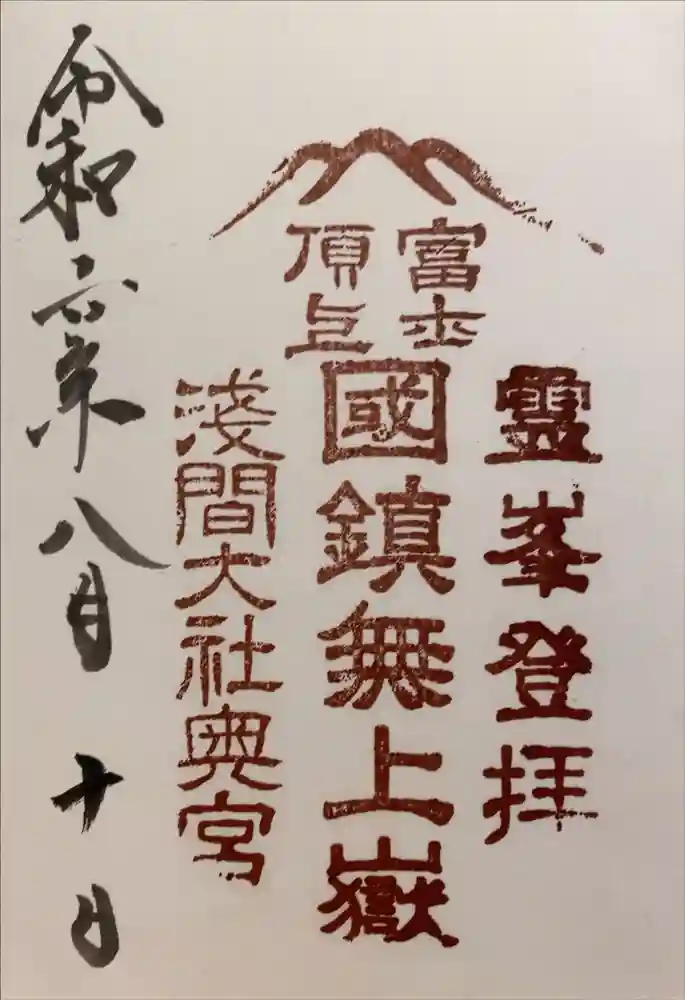 富士
頂上
靈峯登拝
國鎮無上嶽
淺間大社奥宮
令和六年八月十日